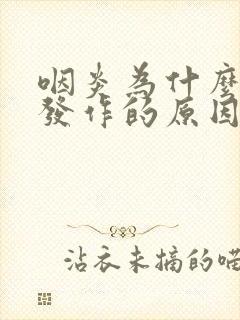 咽炎為什麼
發作的原因
沾衣未摘的喵